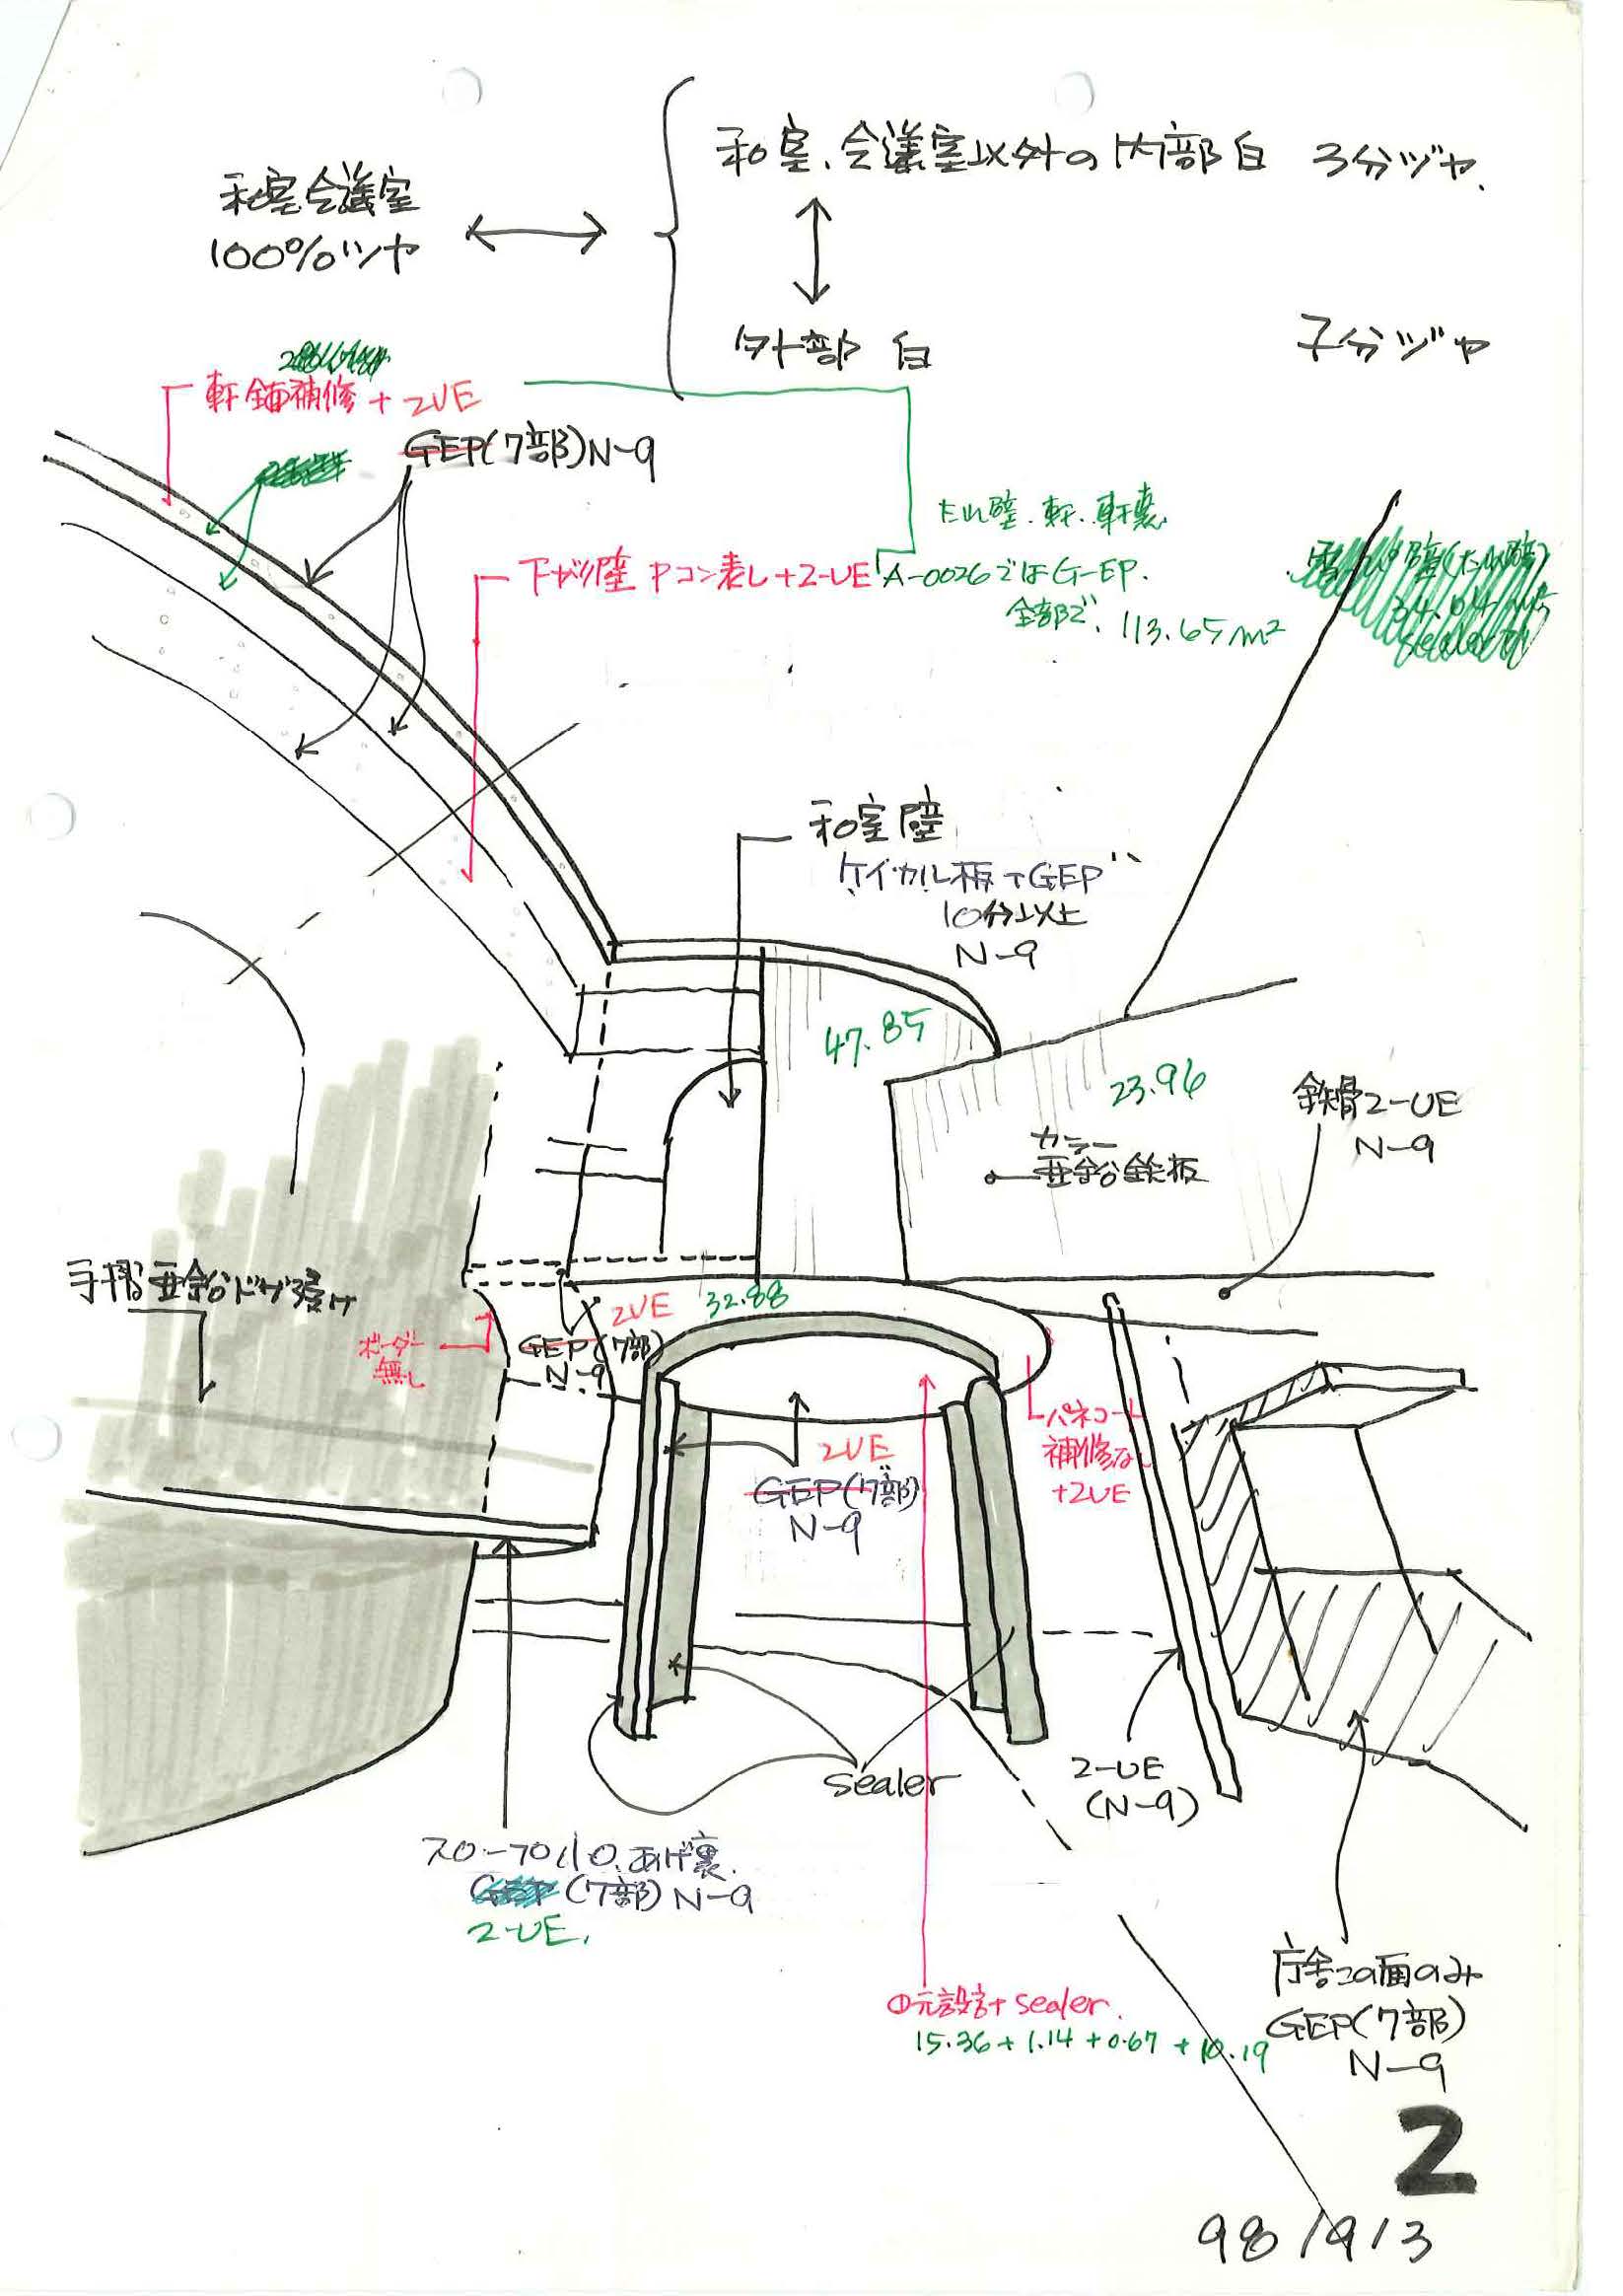 和室、会議室以外の内部白 3分ヅヤ.
和室会議室
100%ツヤ
外部 白
7分ヅヤ
軒 補修 + 2UE
GEP(7部)N-9
たれ壁. 軒. 軒裏
下がり壁 Pコン表し+2-UE
A-0026ではG-EP.
全部で. 113.65m²
和室壁
ケイカル板+GEP
10分以上
N-9
47.85
23.96
鉄骨2-UE
N-9
カラー
亜鉛鉄板
手摺亜鉛ドブ漬け
ボーダー
無し
2UE
32.88
GEP(7部)
N-9
2UE
GEP(7部)
N-9
パネコート
補修なし
+2UE
sealer
2-UE
(N-9)
あげ裏.
GEP(7部)N-9
2-UE.
元設計+sealer.
15.36+1.14+0.67+10.19
庁舎この面のみ
GEP(7部)
N-9
2
98/9/3